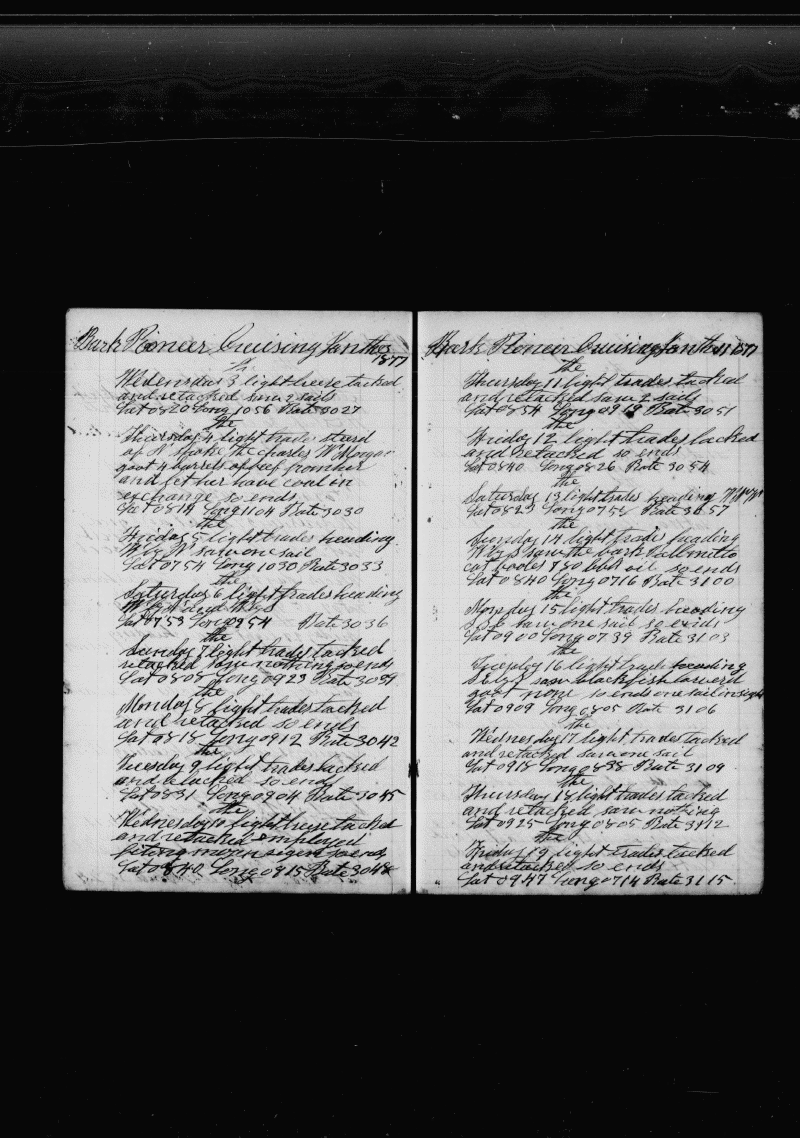 Bark Pioneer Cruising Jan the 3
1877
the
Wedensdas 3 light breese tacked
and retacked saw 2 sails
Lat 0820 Long 1056 Rate 3027
the
Thursday 4 light trades steerd
of W spoke the Charles W Morgan
goot 4 barrels of beef from her
and let her have coal in
exchange so ends
Lat 0814 Long 1104 Rate 3030
the
Friday 5 light trades heading
W by N saw one sail
Lat 0754 Long 1030 Rate 3033
the
Saturday 6 light trades heading
W by N and W by S
Lat 0753 Long 0954 Rate 3036
the
Sunday 7 light trades tacked
retacked saw nothing so ends
Lat 0808 Long 0923 Rate 3039
the
Monday 8 light trades tacked
and retacked so ends
Lat 0818 Long 0912 Rate 3042
the
Tuesday 9 light trades tacked
and retacked so ends
Lat 0831 Long 0904 Rate 3045
the
Wednesday 10 light breese tacked
and retacked employed
so ends
Lat 0840 Long 0915 Rate 3048
Bark Pioneer Cruising Jan the 11 1877
the
Thursday 11 light trades tacked
and retacked saw 2 sails
Lat 0854 Long Rate 3051
the
Friday 12 light trades tacked
and retacked so ends
Lat 0840 Long 0826 Rate 3054
the
Saturday 13 light trades heading
Long Rate 3057
the
Sunday 14 light trades heading
W by S saw the bark Palmetto
cat bodes 780 bbls oil so ends
Lat 0840 Long 0716 Rate 3100
the
Monday 15 light trades heading
saw one sail so ends
Lat 0900 Long 0739 Rate 3103
the
16 light heading
S by E saw blackfish lowerd
goot none so ends one sail in sight
Lat 0909 Long 0805 Rate 3106
the
Wednesday 17 light trades tacked
and retacked saw one sail
Lat 0918 Long 0838 Rate 3109
the
Thursday 18 light trades tacked
and retacked saw nothing
Lat 0925 Long 0805 Rate 3112
the
Friday 19 light trades tacked
and retacked so ends
Lat 0947 Long 0714 Rate 3115